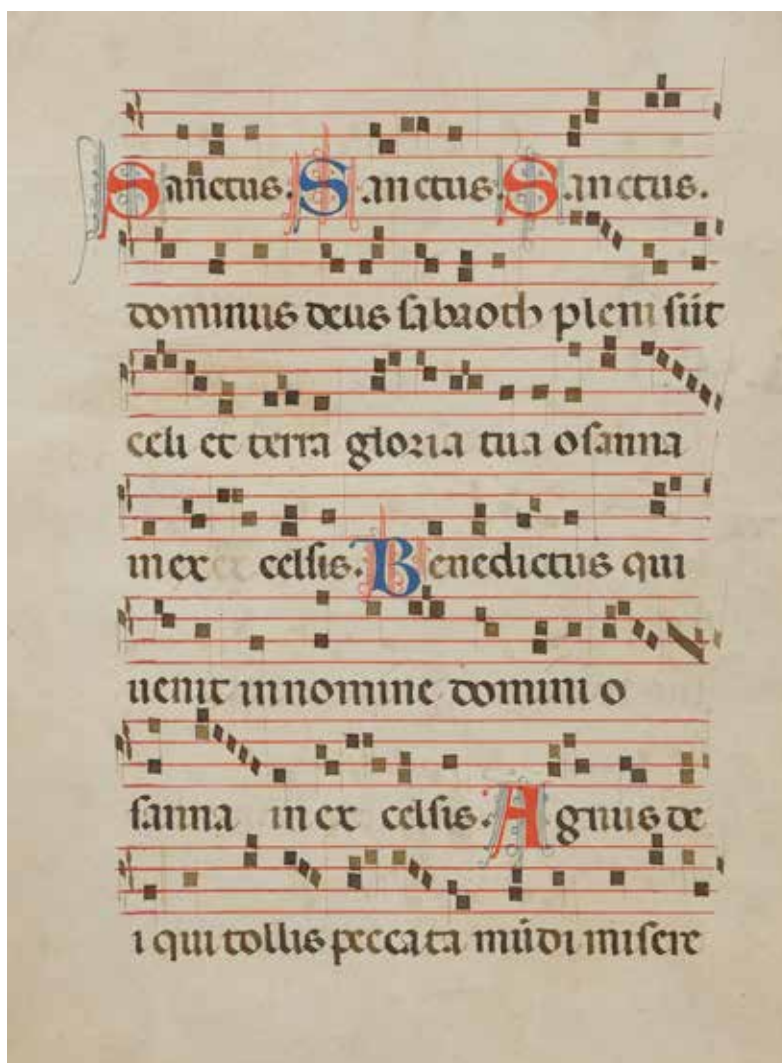 Sanctus. Sanctus. Sanctus.
dominus deus sabaoth pleni sūt
celi et terra gloria tua osanna
in ex celsis. Benedictus qui
uenit in nomine domini o
sanna in ex celsis. Agnus de
i qui tollis peccata mūdi misere